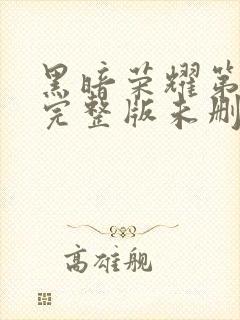 黑暗荣耀第
完整版未删
高雄舰